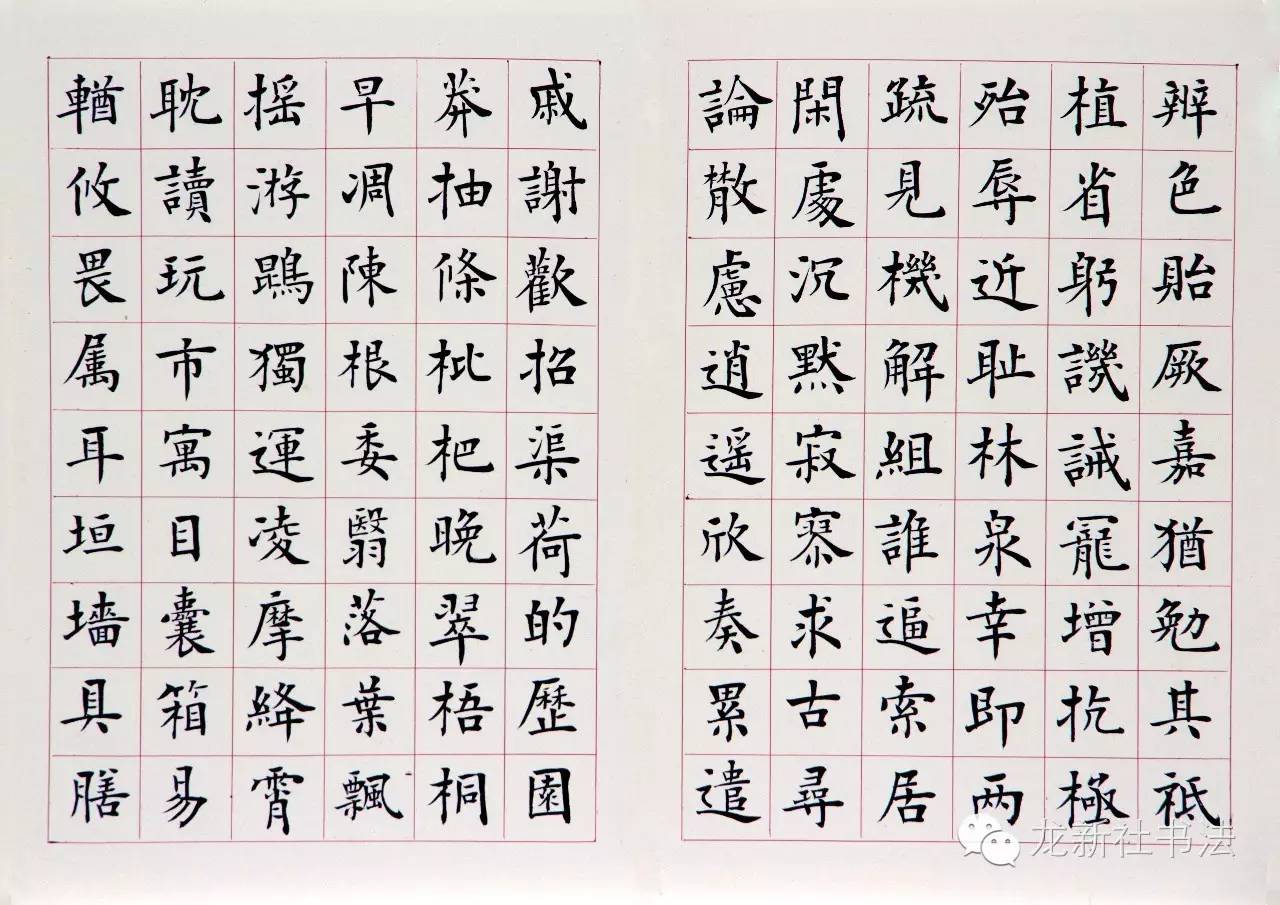 辨色貽厥嘉猶勉其祗
植省躬譏誡寵增抗極
殆辱近耻林泉幸即两
疏見機解組誰逼索居
閑處沉默寂寥求古尋
論散慮逍遥欣奏累遣
戚謝歡招渠荷的歷園
莽抽條枇杷晚翠梧桐
早凋陳根委翳落葉飄
摇游鵾獨運凌摩絳霄
耽讀玩市寓目囊箱易
輶攸畏属耳垣墻具膳
龙新社书法